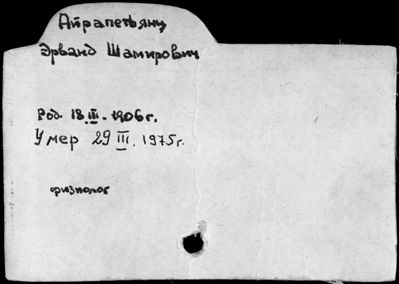 Айрапетьянц
Эрванд Шамирович
Род. 18.III.1906г.
Умер 29 III. 1975г.
физиолог